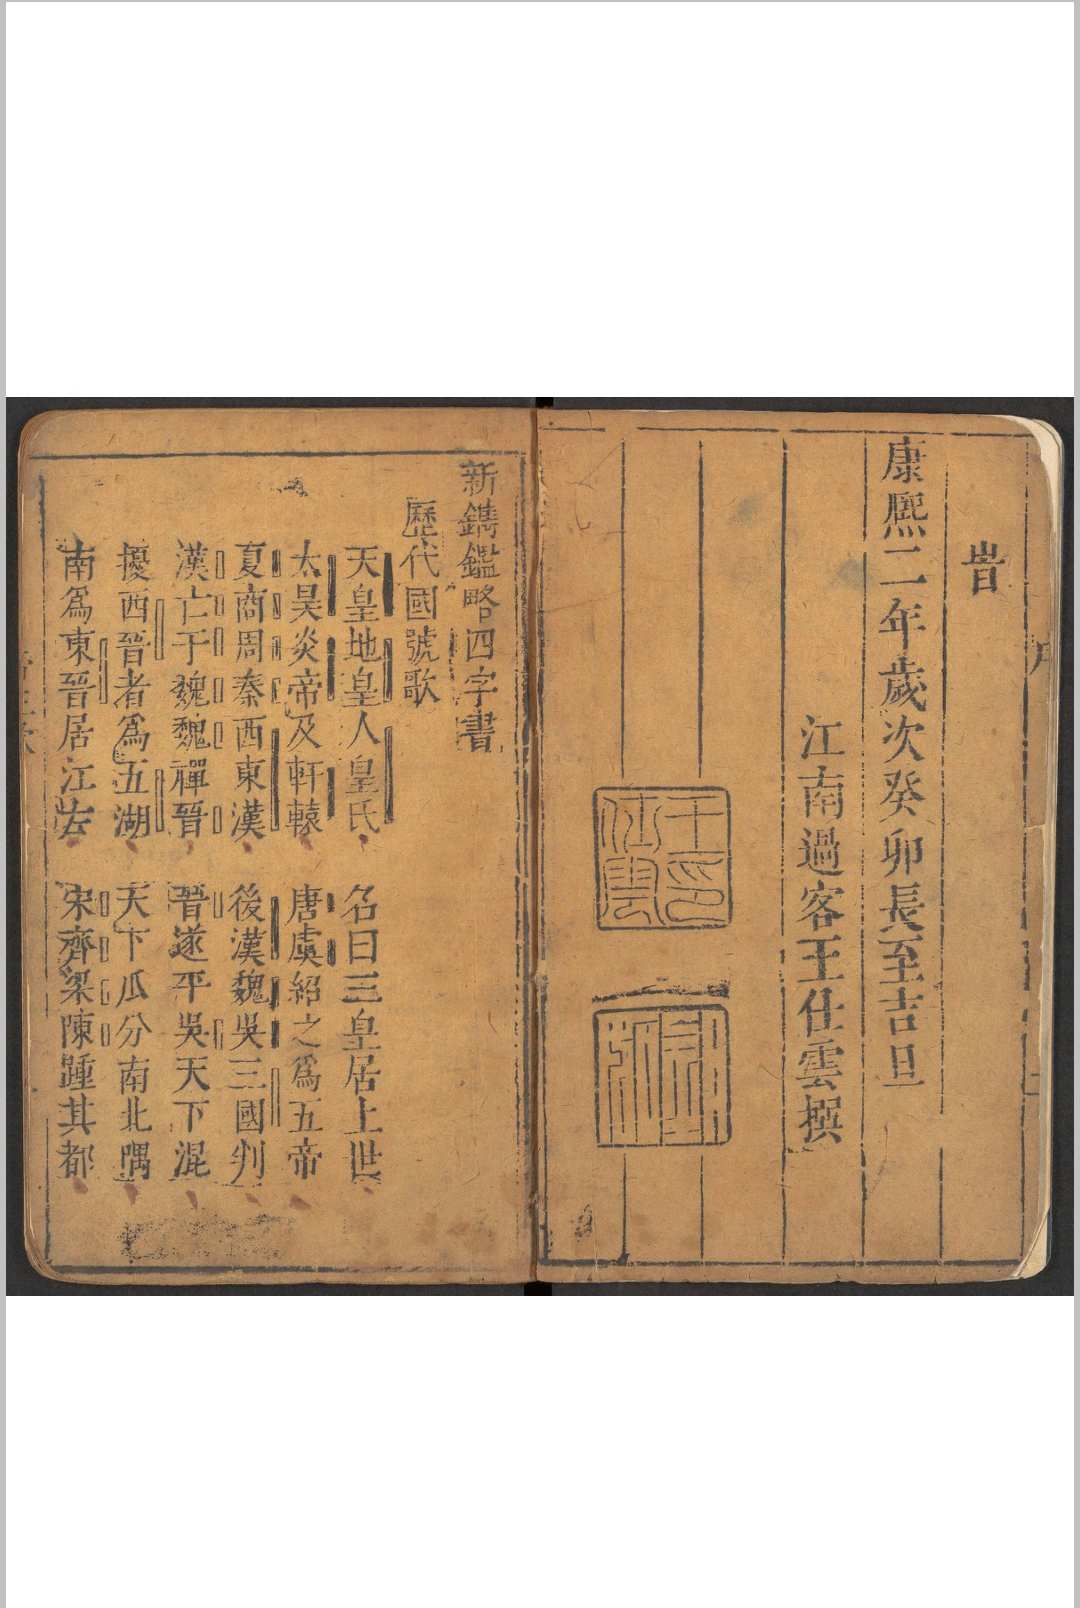 旹
康熙二年歲次癸卯長至吉旦
江南過客王仕雲撰
王仕雲印
新鐫鑑略四字書
歷代國號歌
天皇地皇人皇氏 名曰三皇居上世
太昊炎帝及軒轅 唐虞紹之爲五帝
夏商周秦西東漢 後漢魏吳三國判
漢亡于魏魏禪晉 晉遂平吳天下混
擾西晉者爲五湖 天下瓜分南北隅
南爲東晉居江左 宋齊梁陳踵其都